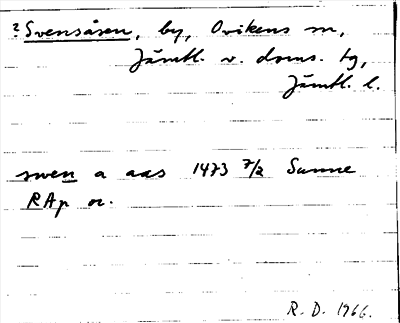 ? Svensåsen, by, Ovikens sn,
Jämtl. v. doms. tg,
Jämtl. l.
swen a aas 1473 7/2 Sunne
RAp or.
R. D. 1966.